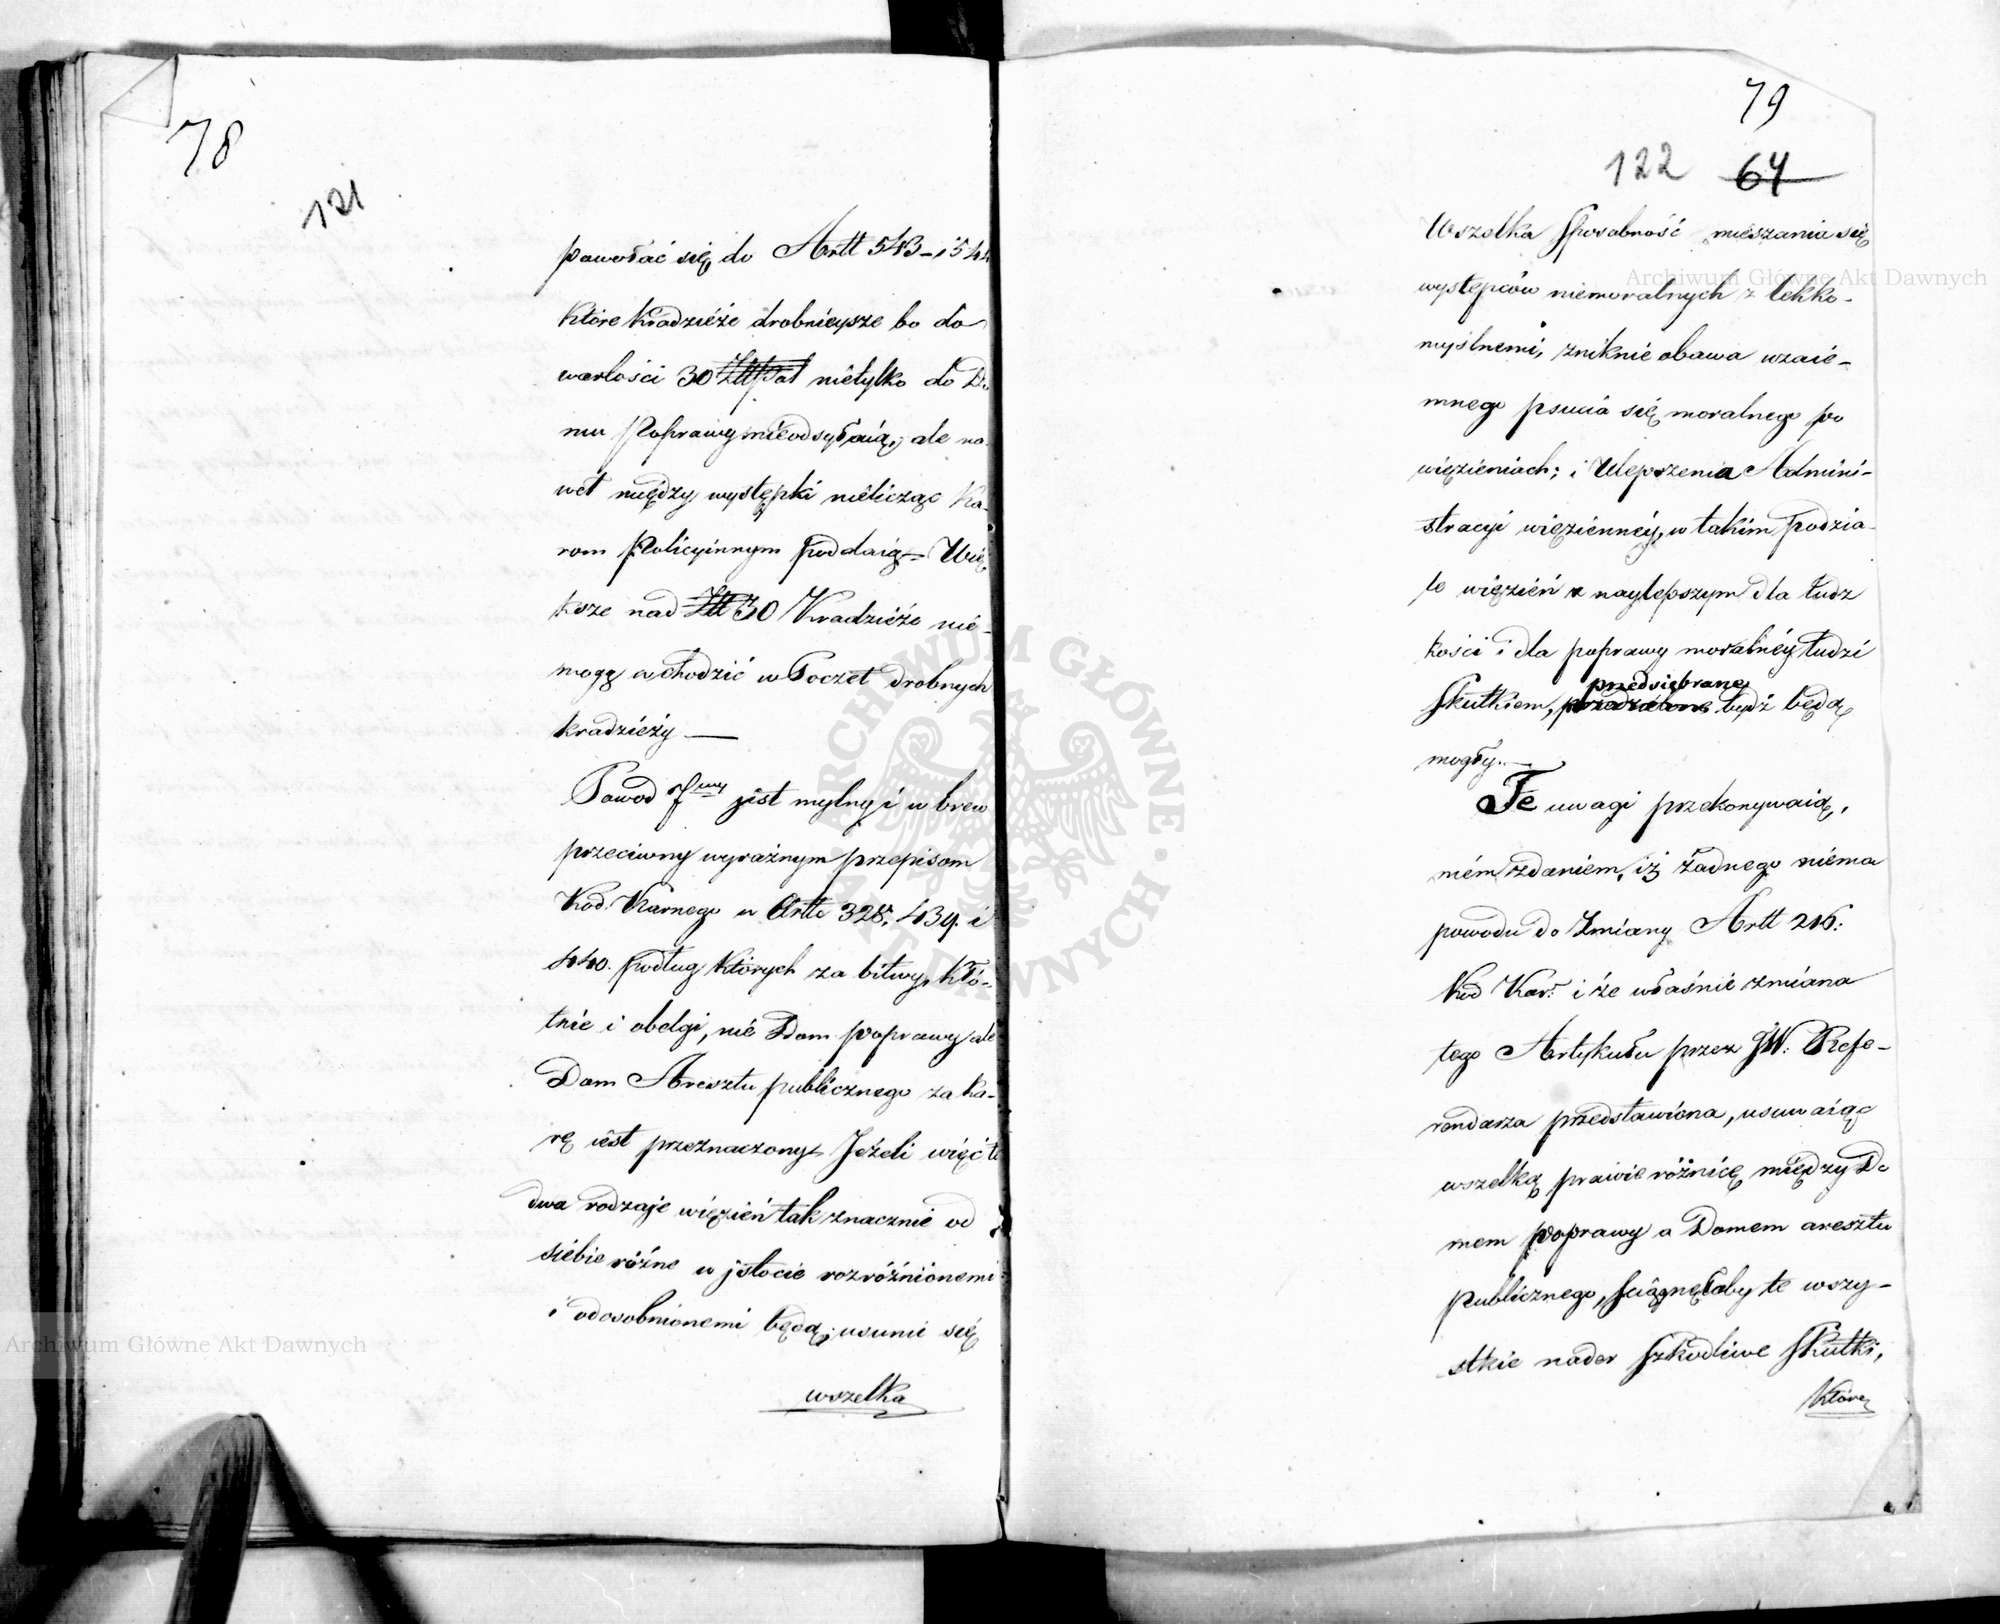 78
121
powołać się do Artt 543 – i 544
które kradzieże drobnieysze bo do
wartości 30 nietylko do Do
mu Poprawy nieodsyłaią, ale na
wet między występki nielicząc Ka-
rom Policyinnym poddaią – Wię
ksze nad Złł 30 Kradzieże nie-
mogą wchodzić w Poczet drobnych
kradzieży —
Powod 7my jest mylny i w brew
przeciwny wyraźnym przepisom
Kod: Karnego w Artt 328, 439. i
440. podług których za bitwy, kłó-
tnie i obelgi, nie Dom poprawy ale
Dom Aresztu publicznego za ka-
rę iest przeznaczony – Jeżeli więc te
dwa rodzaje więzień tak znacznie od
siebie różne w jstocie rozróżnionemi
i odosobnionemi będą, usunie się
wszelka
79
122 64
Wszelka sposobność mieszania się
występców niemoralnych z lekko-
myślnemi, zniknie obawa wzaie-
mnego psucia się moralnego po
więzieniach; i Ulepszenia Admini-
stracyi więzienney, w takim podzia-
le więzień z naylepszym dla ludz
kości i dla poprawy moralney ludzi
przedsiębrane
Skutkiem, bydź będą
mogły. —
Te uwagi przekonywaią,
mém zdaniem, iż żadnego niema
powodu do Zmiany Artt 26:
Kod Kar: i że właśnie zmiana
tego Artykułu przez JW: Refe-
rendarza przedstawiona, usuwaiąc
wszelką prawie różnicę między Do
mem poprawy a Domem aresztu
publicznego, ściągnęłaby te wszy-
stkie nader szkodliwe skutki,
które
ARCHIWUM GŁÓWNE AKT DAWNYCH
Archiwum Główne Akt Dawnych
Archiwum Główne Akt Dawnych